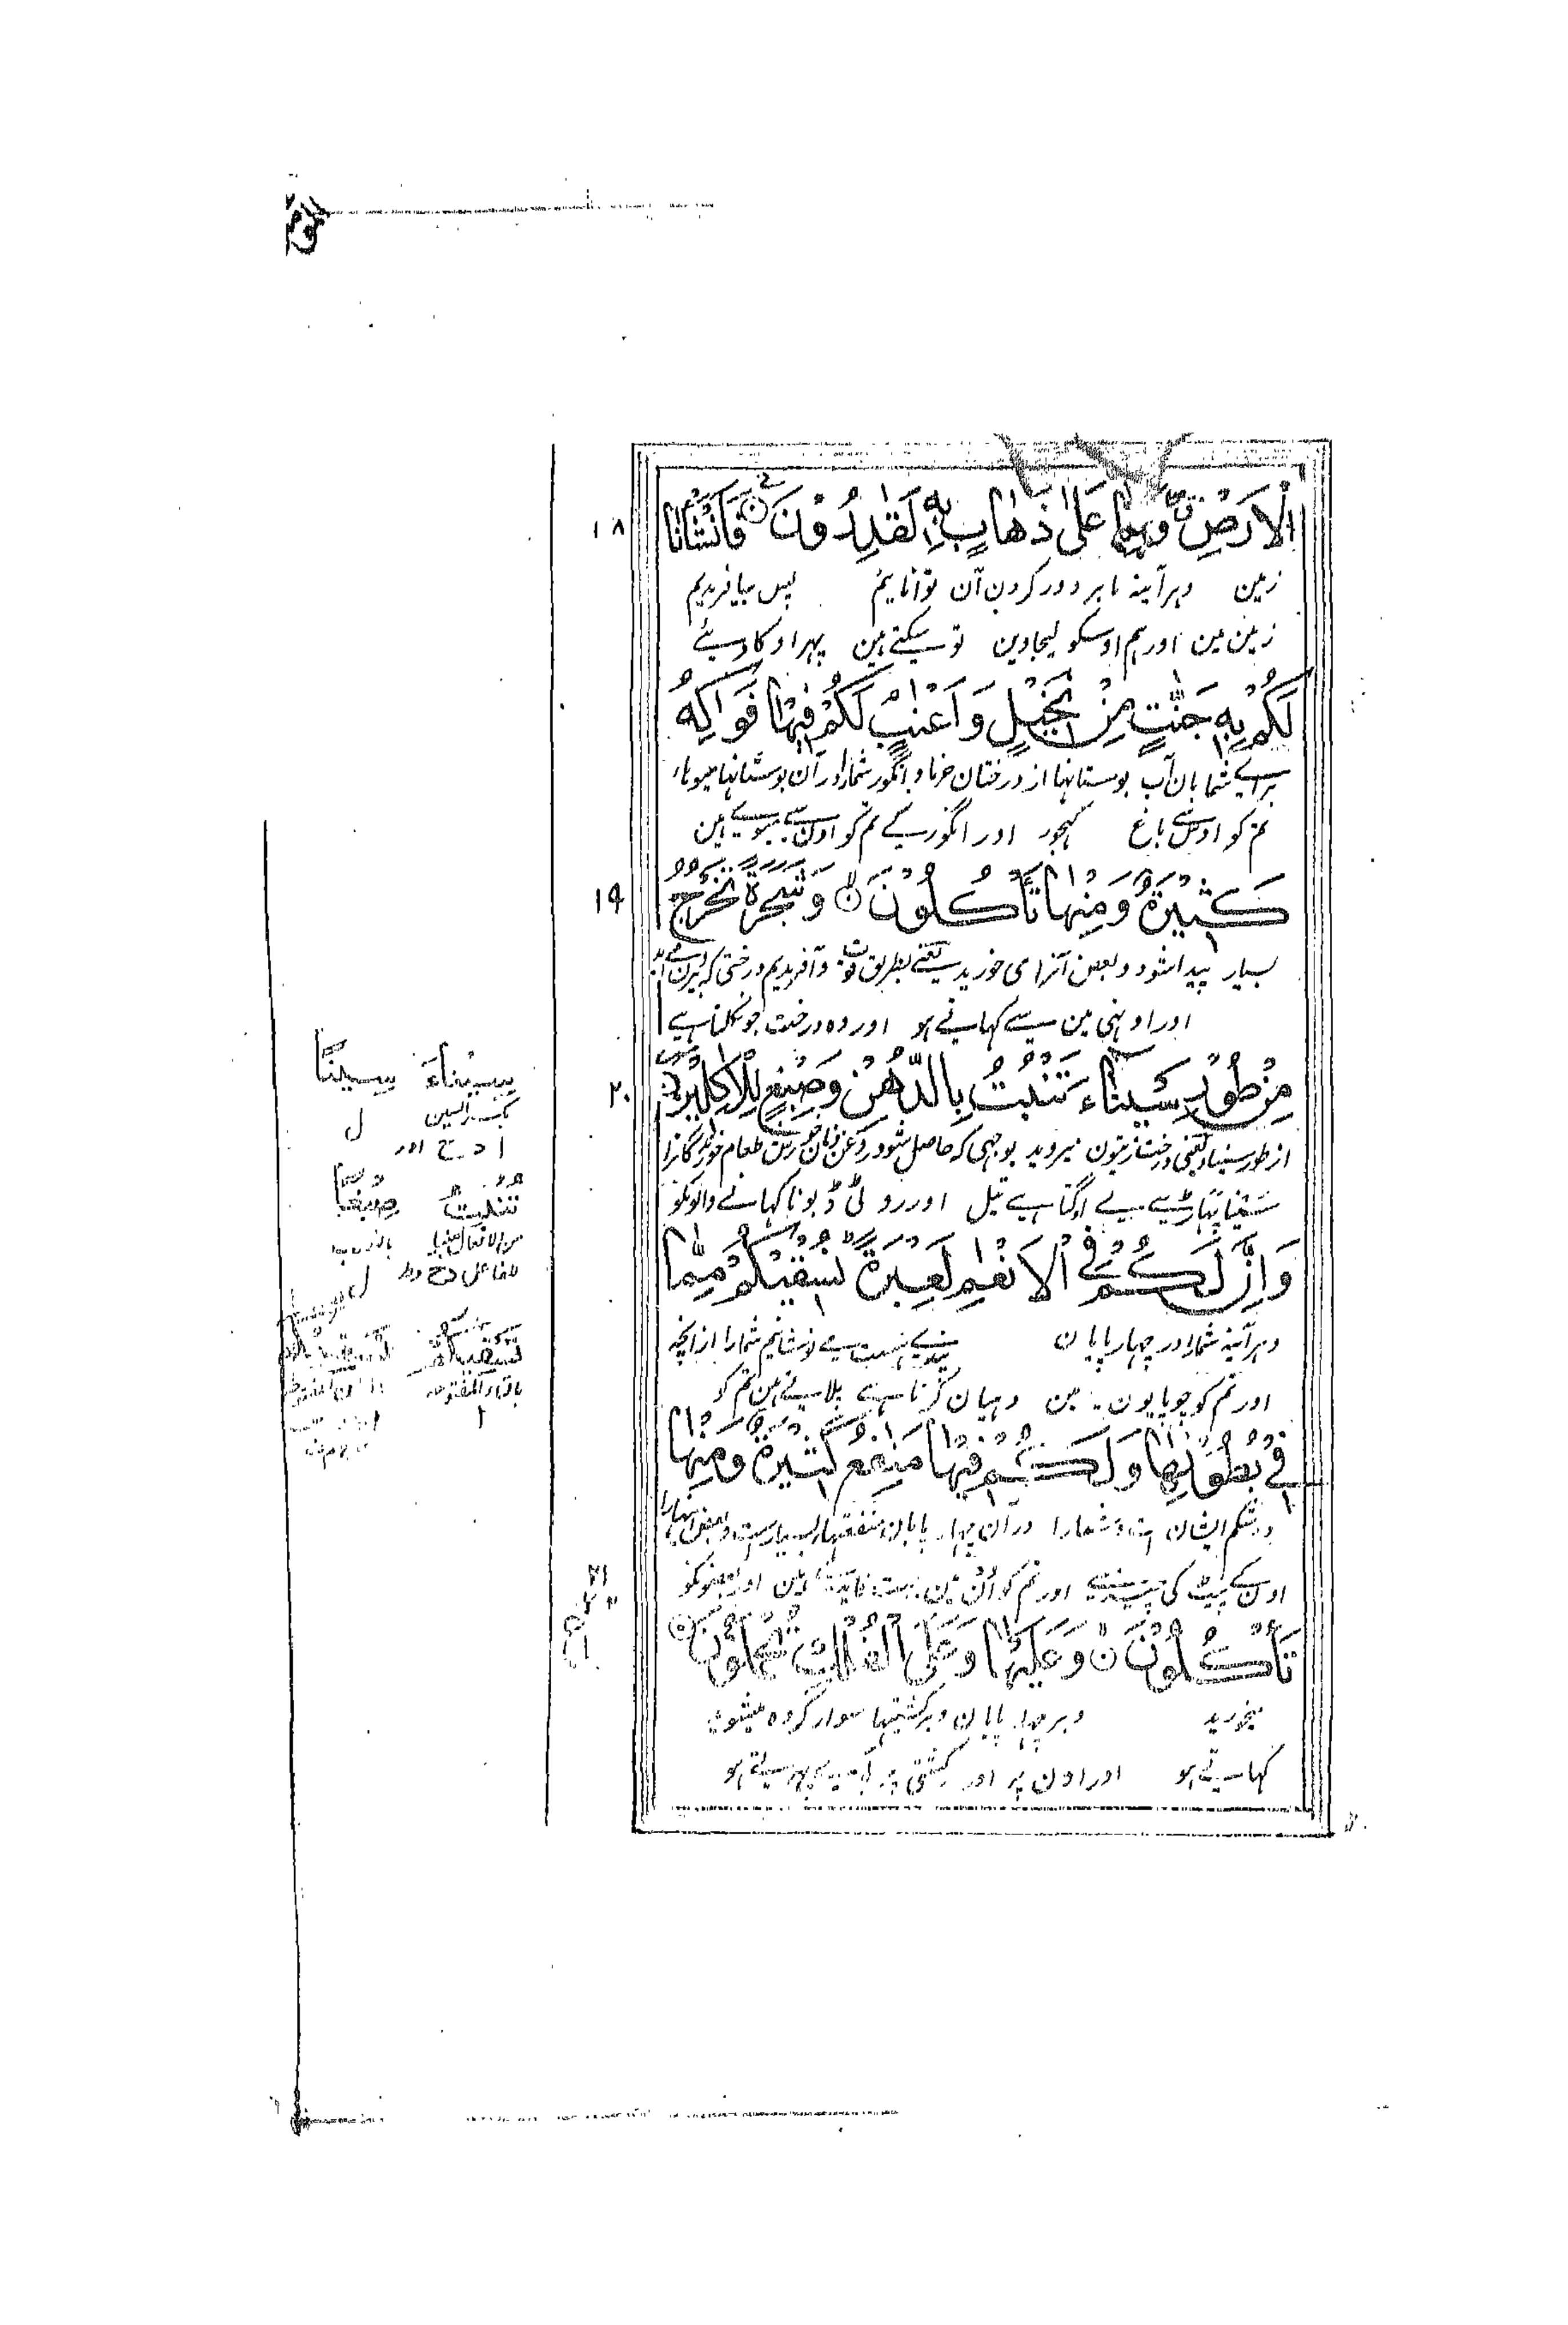 الْاَرْضِ وَاِنَّا عَلٰى ذَهَابٍ بِهٖ لَقٰدِرُوْنَ ۝ فَاَنْشَاْنَا
۱۸
زمین وہرآینہ ما بر دور کردن آن توانایم پس بیافریدیم
زمین مین اور ہم اوسکو لیجاوین تو سکتے ہین پہر اوگا دیئے
لَكُمْ بِهٖ جَنّٰتٍ مِّنْ نَّخِيْلٍ وَّاَعْنٰبٍ لَكُمْ فِيْهَا فَوَاكِهُ
برائے شما بان آب بوستانہا از درختان خرما و انگور شمارا در آن بوستانہا میوہا
تمکو اوس سے باغ کہجور اور انگور کے تمکو اون سے میوے ہین
كَثِيْرَةٌ وَّمِنْهَا تَاْكُلُوْنَ ۝ وَشَجَرَةً تَخْرُجُ
۱۹
بسیار پیدا شود و بعض آنرا می خورید یعنے بطریق قوت و آفریدیم درختی کہ بیرون
اور اونہی مین سے کہاتے ہو اور وہ درخت جو نکلتا ہے
مِنْ طُوْرِ سَيْنَاءَ تَنْبُتُ بِالدُّهْنِ وَصِبْغٍ لِّلْاٰكِلِيْنَ
۲۰
از طور سینا یعنی درخت زیتون میروید بوجہی کہ حاصل شود روغن و نان خورش طعام خورندگانرا
سینا پہاڑ سے لے اوگتا ہے تیل اور روٹی ڈبونا کہانے والونکو
وَاِنَّ لَكُمْ فِى الْاَنْعٰمِ لَعِبْرَةً نُسْقِيْكُمْ مِّمَّا
وہرآینہ شمارا در چہارپایان پندے ہست مے نوشانیم شمارا ازانچہ
اور تمکو چوپایون مین دہیان کرنا ہے پلاتے ہین تمکو
فِى بُطُوْنِهَا وَلَكُمْ فِيْهَا مَنٰفِعُ كَثِيْرَةٌ وَّمِنْهَا
در شکم ایشان است و شمارا در آن چہار پایان منفعتہا بسیارست و بعض اینہارا
اون کے پیٹ کی چیز سے اور تمکو اُن مین بہت فایدے ہین اور بعضونکو
تَاْكُلُوْنَ ۝ وَعَلَيْهَا وَعَلَى الْفُلْكِ تُحْمَلُوْنَ ۝
میخورید و بر چہار پایان و بر کشتیہا سوار کردہ میشوید
کہاتے ہو اور اون پر اور کشتی پر لدے پہرتے ہو
سِيْنَاءَ سِيْنًا
بکسر السین ل
ا د ح اور
تُنْبِتُ صِبْغًا
من الافعال